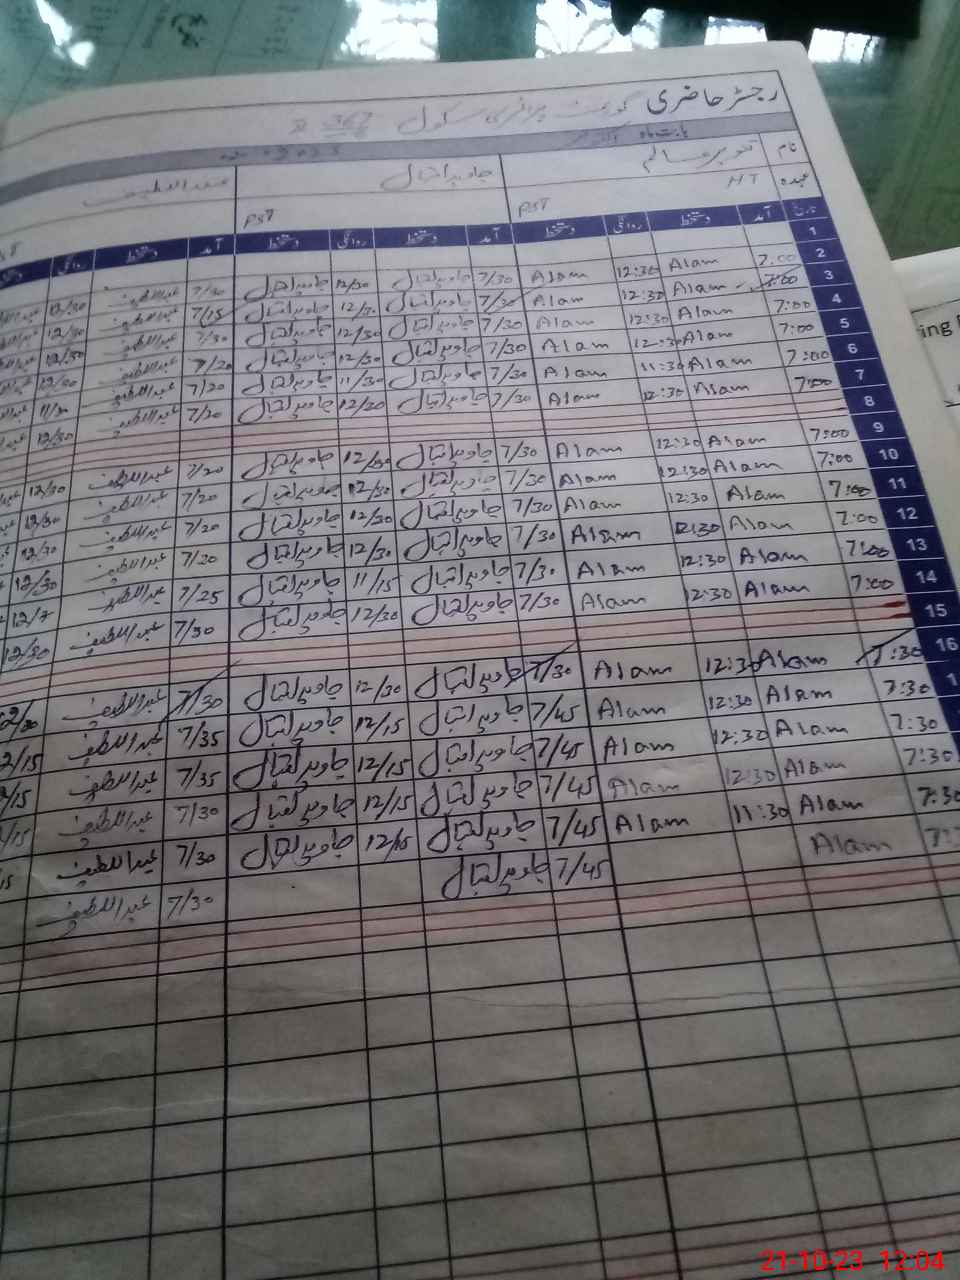 رجسٹر حاضری گورنمنٹ پرائمری سکول 367
بابت ماہ
نام تنویر عالم جاوید اقبال عبداللطیف
عہدہ HT PST PST
تاریخ آمد دستخط روانگی دستخط آمد دستخط روانگی دستخط آمد دستخط روانگی
1
2 7:00 Alam 12:30 Alam 7/30 جاوید اقبال 12/30 جاوید اقبال 7/30 عبداللطیف 12/30
3 7:00 Alam 12:30 Alam 7/30 جاوید اقبال 12/30 جاوید اقبال 7/15 عبداللطیف 12/30
4 7:00 Alam 12:30 Alam 7/30 جاوید اقبال 12/30 جاوید اقبال 7/30 عبداللطیف 12/30
5 7:00 Alam 12:30 Alam 7/30 جاوید اقبال 12/30 جاوید اقبال 7/20 عبداللطیف 12/30
6 7:00 Alam 11:30 Alam 7/30 جاوید اقبال 11/30 جاوید اقبال 7/20 عبداللطیف 11/30
7 7:00 Alam 12:30 Alam 7/30 جاوید اقبال 12/30 جاوید اقبال 7/20 عبداللطیف 12/30
8
9 7:00 Alam 12:30 Alam 7/30 جاوید اقبال 12/30 جاوید اقبال 7/20 عبداللطیف 12/30
10 7:00 Alam 12:30 Alam 7/30 جاوید اقبال 12/30 جاوید اقبال 7/20 عبداللطیف 12/30
11 7:00 Alam 12:30 Alam 7/30 جاوید اقبال 12/30 جاوید اقبال 7/20 عبداللطیف 12/30
12 7:00 Alam 12:30 Alam 7/30 جاوید اقبال 12/30 جاوید اقبال 7/30 عبداللطیف 12/30
13 7:00 Alam 12:30 Alam 7/30 جاوید اقبال 11/15 جاوید اقبال 7/25 عبداللطیف 12/7
14 7:00 Alam 12:30 Alam 7/30 جاوید اقبال 12/30 جاوید اقبال 7/30 عبداللطیف 12/30
15
16 7:30 Alam 12:30 Alam 7/30 جاوید اقبال 12/30 جاوید اقبال 7/30 عبداللطیف
7:30 Alam 12:30 Alam 7/45 جاوید اقبال 12/15 جاوید اقبال 7/35 عبداللطیف
7:30 Alam 12:30 Alam 7/45 جاوید اقبال 12/15 جاوید اقبال 7/35 عبداللطیف
7:30 Alam 12:30 Alam 7/45 جاوید اقبال 12/15 جاوید اقبال 7/30 عبداللطیف
7:30 Alam 11:30 Alam 7/45 جاوید اقبال 12/15 جاوید اقبال 7/30 عبداللطیف
Alam 7/45 جاوید اقبال 7/30 عبداللطیف
ing
21-10-23 12:04